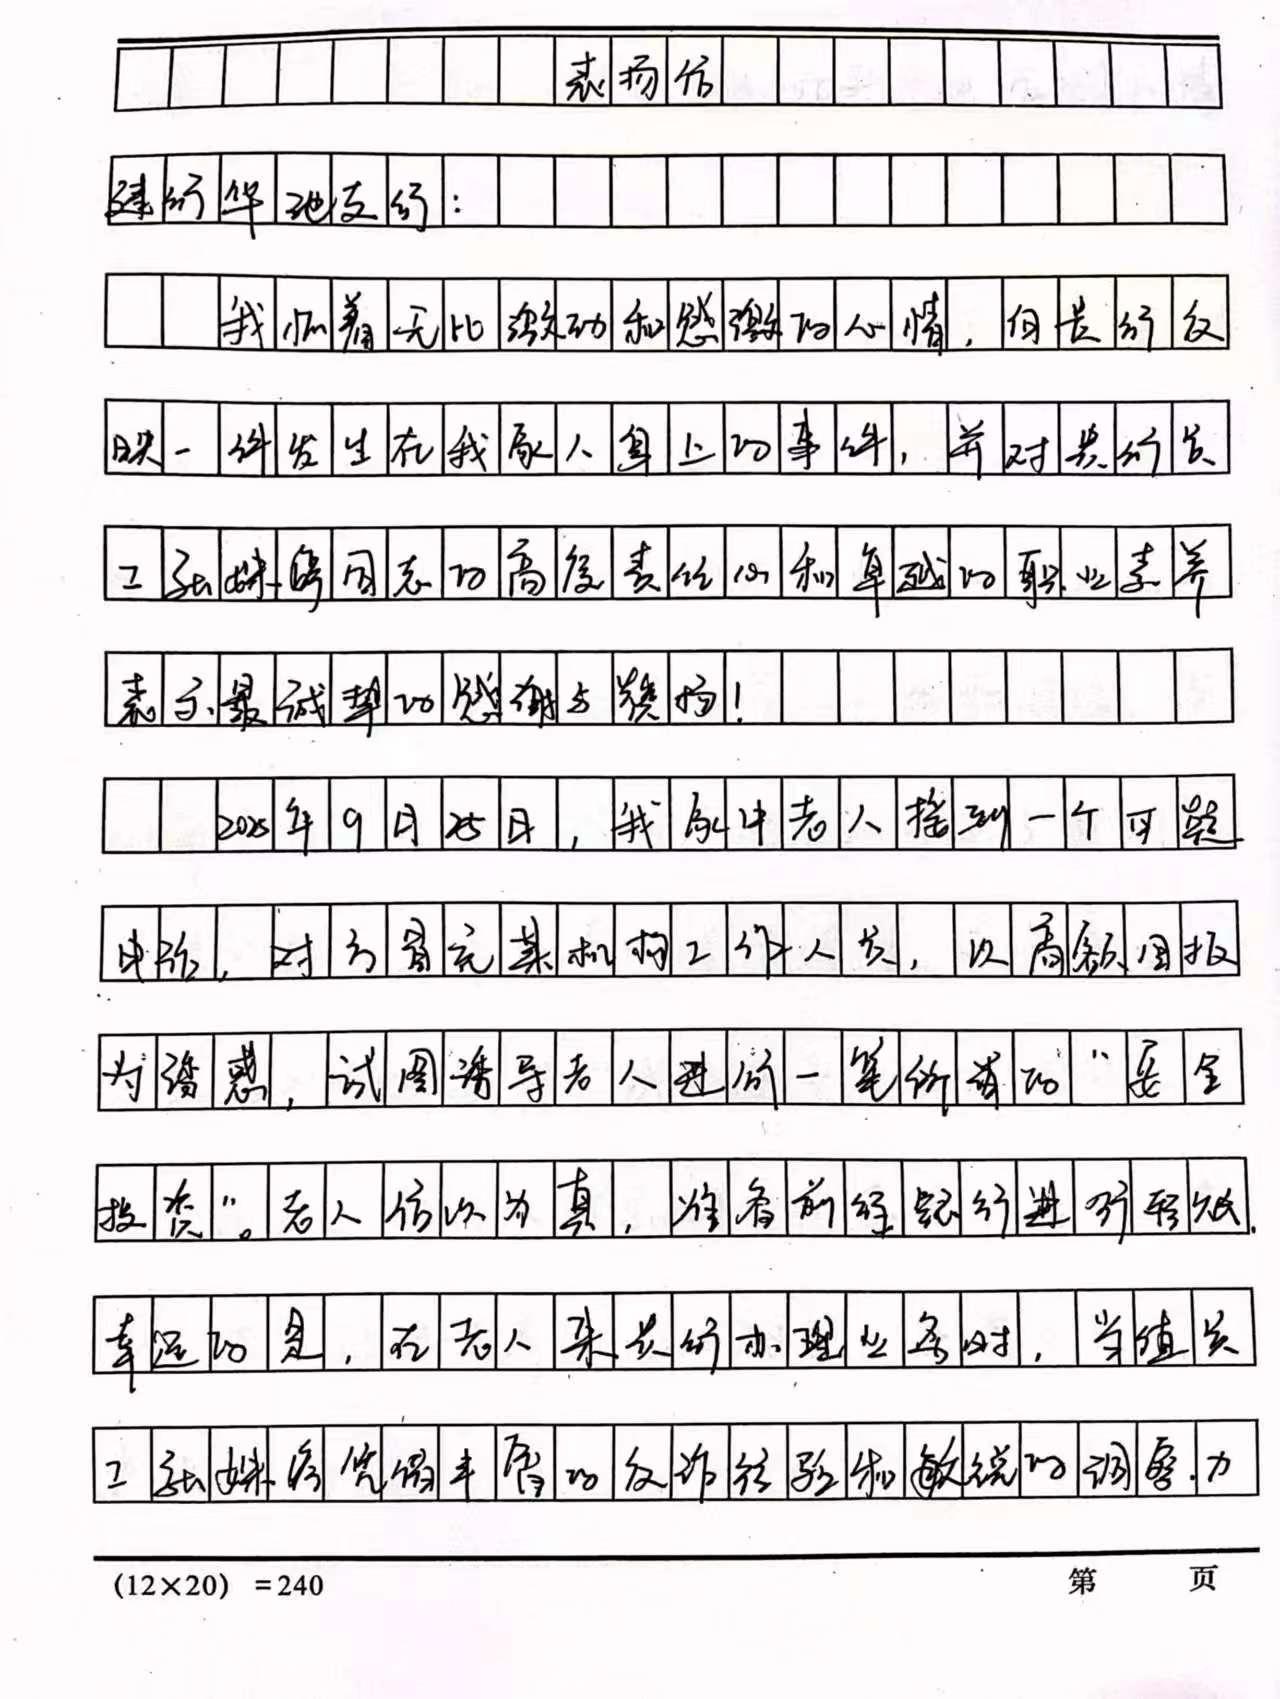 表扬信
建行华地支行：
我怀着无比激动和感激的心情，向贵行反
映一件发生在我家人身上的事件，并对贵行员
工张姝同志的高度责任心和卓越的职业素养
表示最诚挚的感谢与赞扬！
2025年9月25日，我家中老人接到一个可疑
电话，对方冒充某机构工作人员，以高额回报
为诱惑，试图诱导老人进行一笔所谓的“安全
投资”。老人信以为真，准备前往银行进行转账．
幸运的是，在老人来贵行办理业务时，当值员
工张姝凭借丰厚的反诈经验和敏锐的洞察力
(12×20) =240 第 页